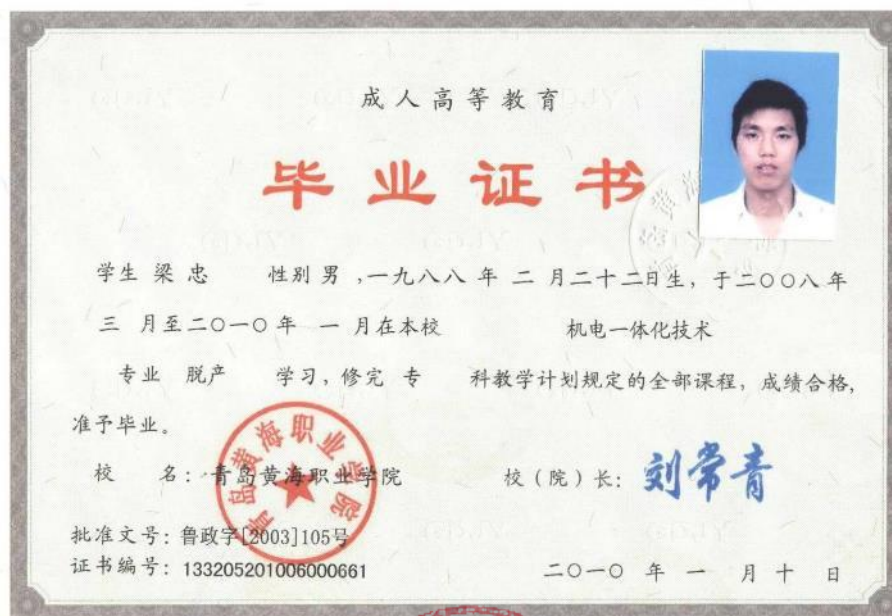 成人高等教育
毕业证书
学生 梁忠 性别 男 ,一九八八 年 二 月二十二日生, 于二〇〇八年
三 月至二〇一〇年 一 月在本校 机电一体化技术
专业 脱产 学习, 修完 专 科教学计划规定的全部课程, 成绩合格,
准予毕业。
校 名: 青岛黄海职业学院 校(院)长: 刘常青
青岛黄海职业学院
批准文号: 鲁政字[2003]105号
证书编号: 133205201006000661 二〇一〇 年 一 月 十 日